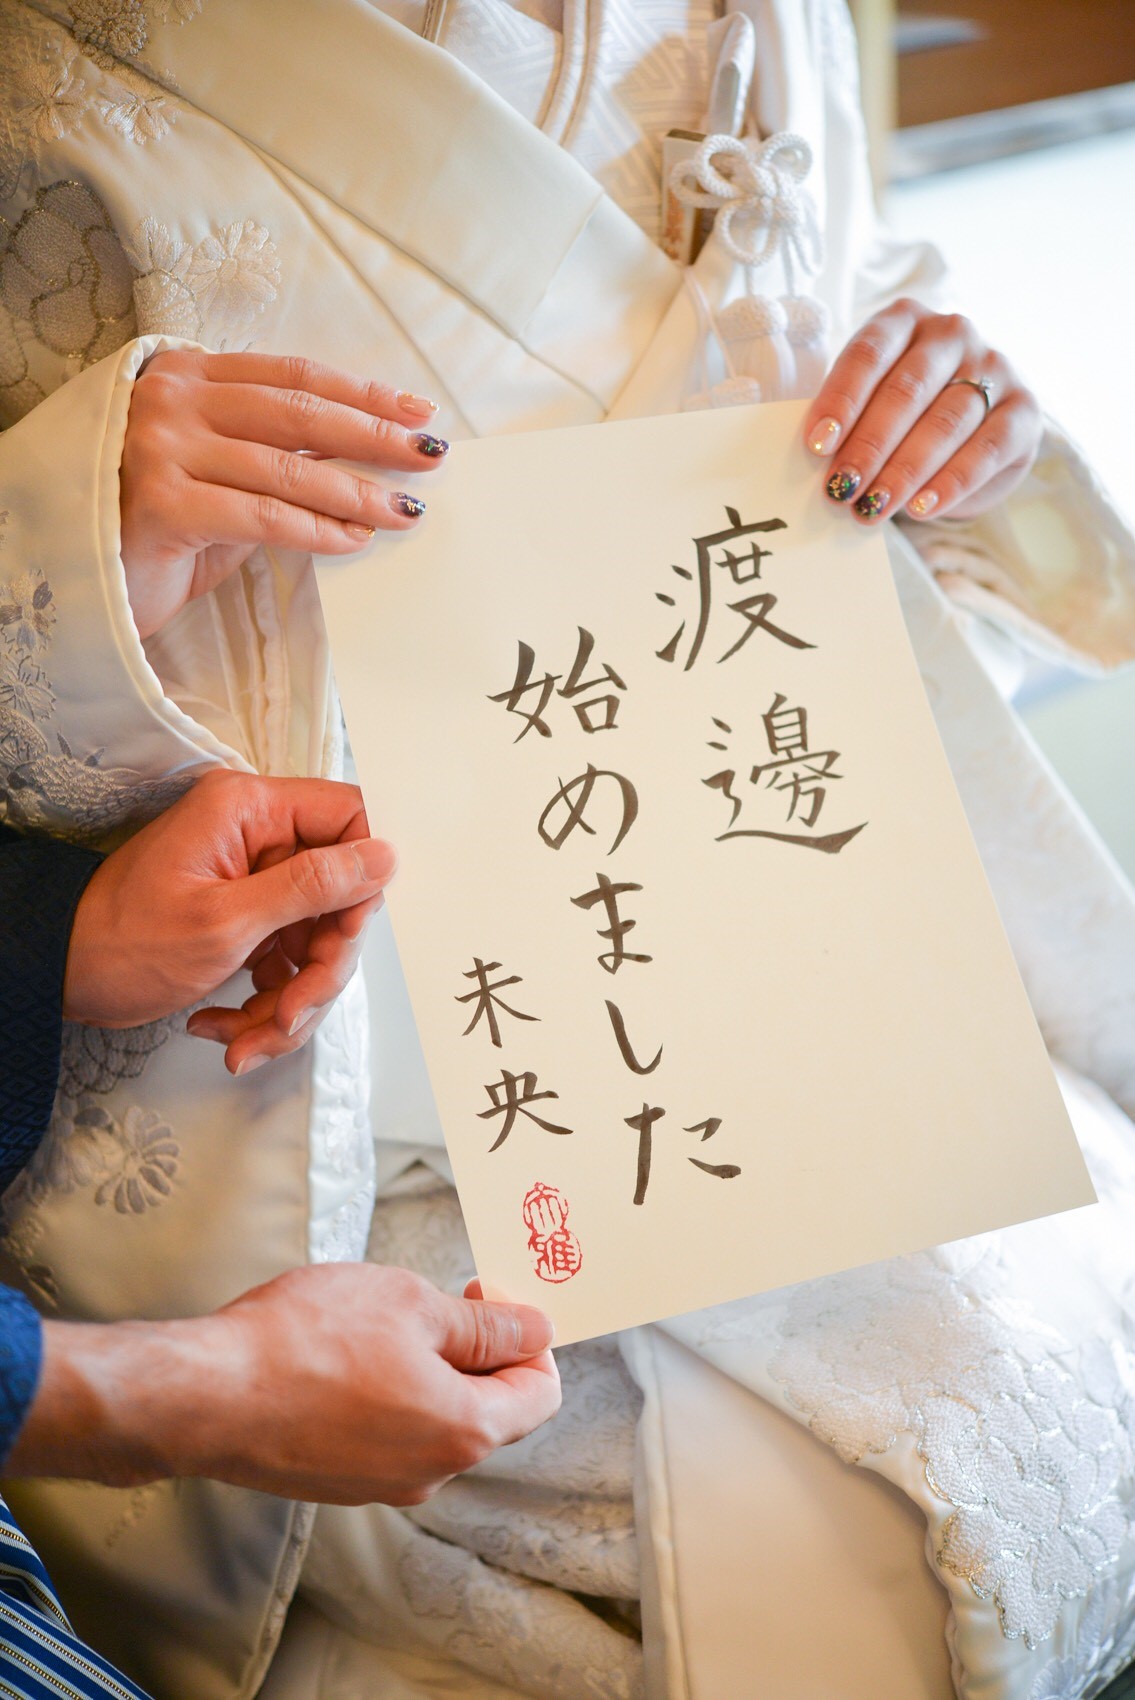 渡邊
始めました
未央